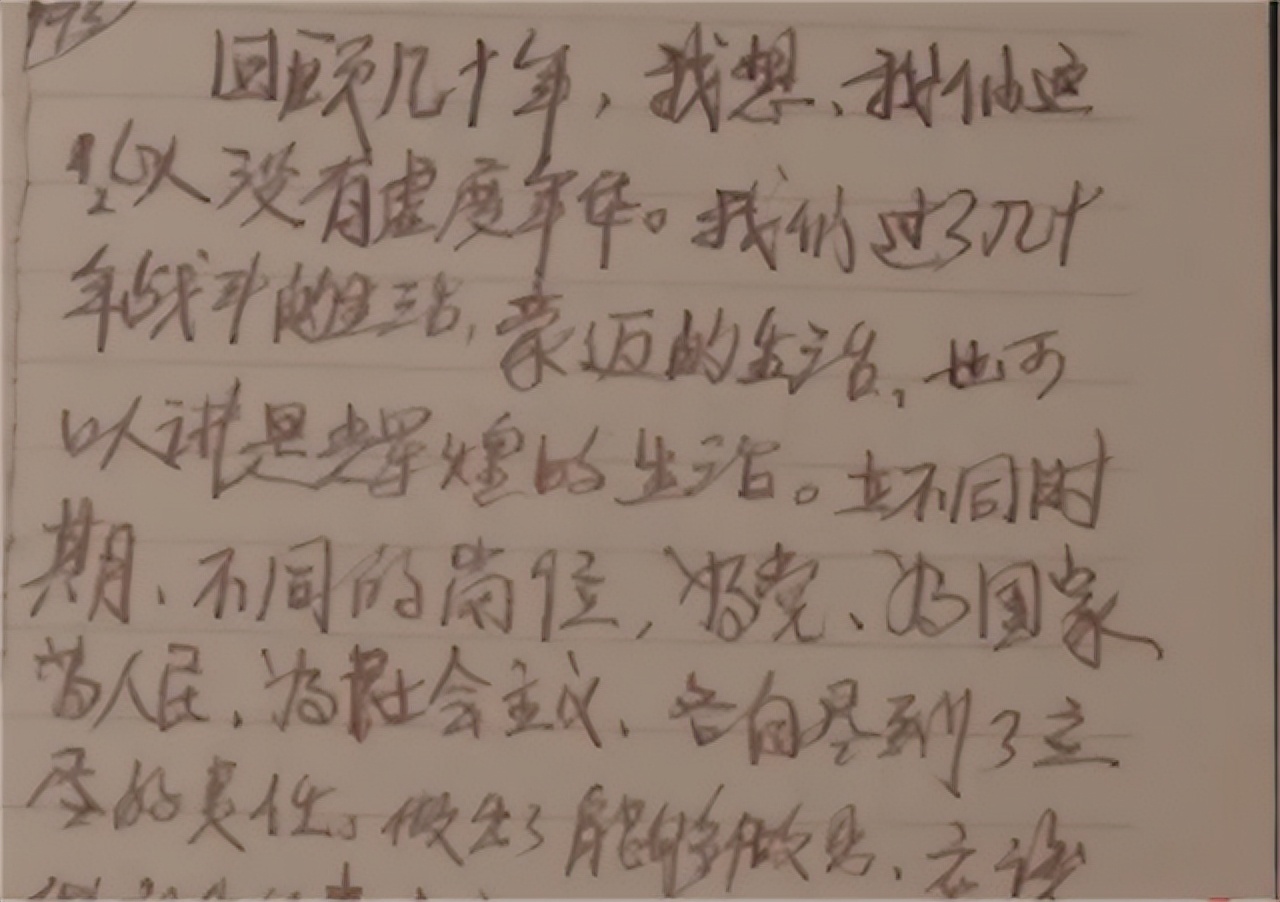 回顾几十年，我想，我们这
些人没有虚度年华。我们过了几十
年战斗的生活，豪迈的生活，也可
以讲是辉煌的生活。在不同时
期、不同的岗位，为党、为国家
为人民、为社会主义，各自尽到了应
尽的责任，做出了能够做出、应该